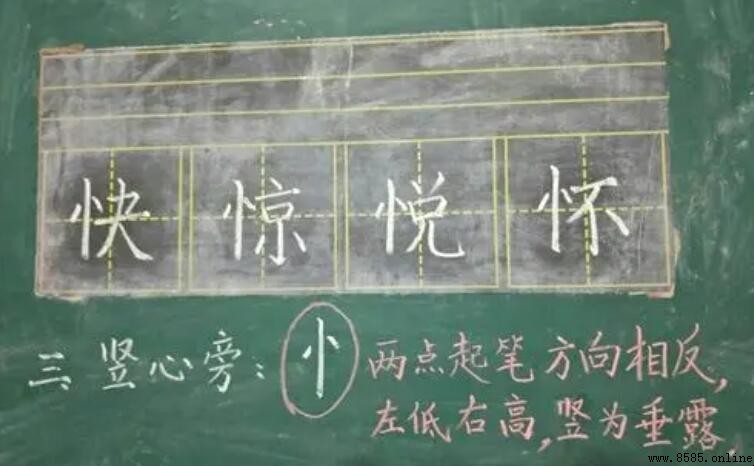 快惊悦怀
三、竖心旁：忄两点起笔方向相反，
左低右高，竖为垂露
www.8585.online